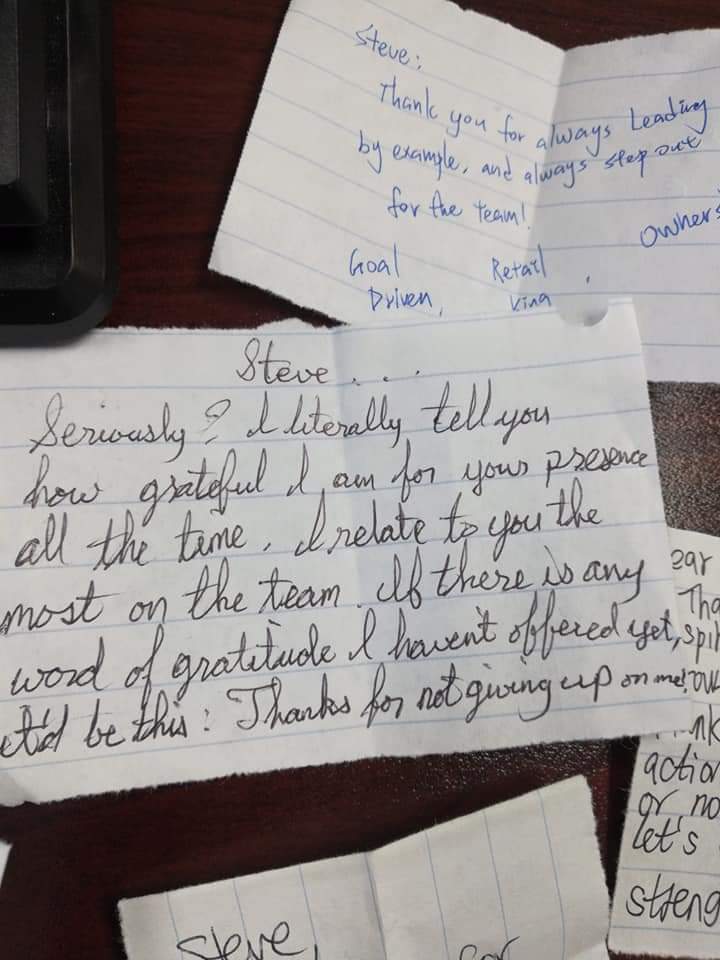 Steve:
Thank you for always Leading
by example, and always step out
for the team!
Goal Retail , Owners
Driven, King
Steve...
Seriously? I literally tell you
how grateful I am for your presence
all the time. I relate to you the
most on the team. If there is any
word of gratitude I haven't offered yet,
it'd be this: Thanks for not giving up on me!
ear
Tha
spi
ow
nk
action
or no
let's
streng
Steve,
for